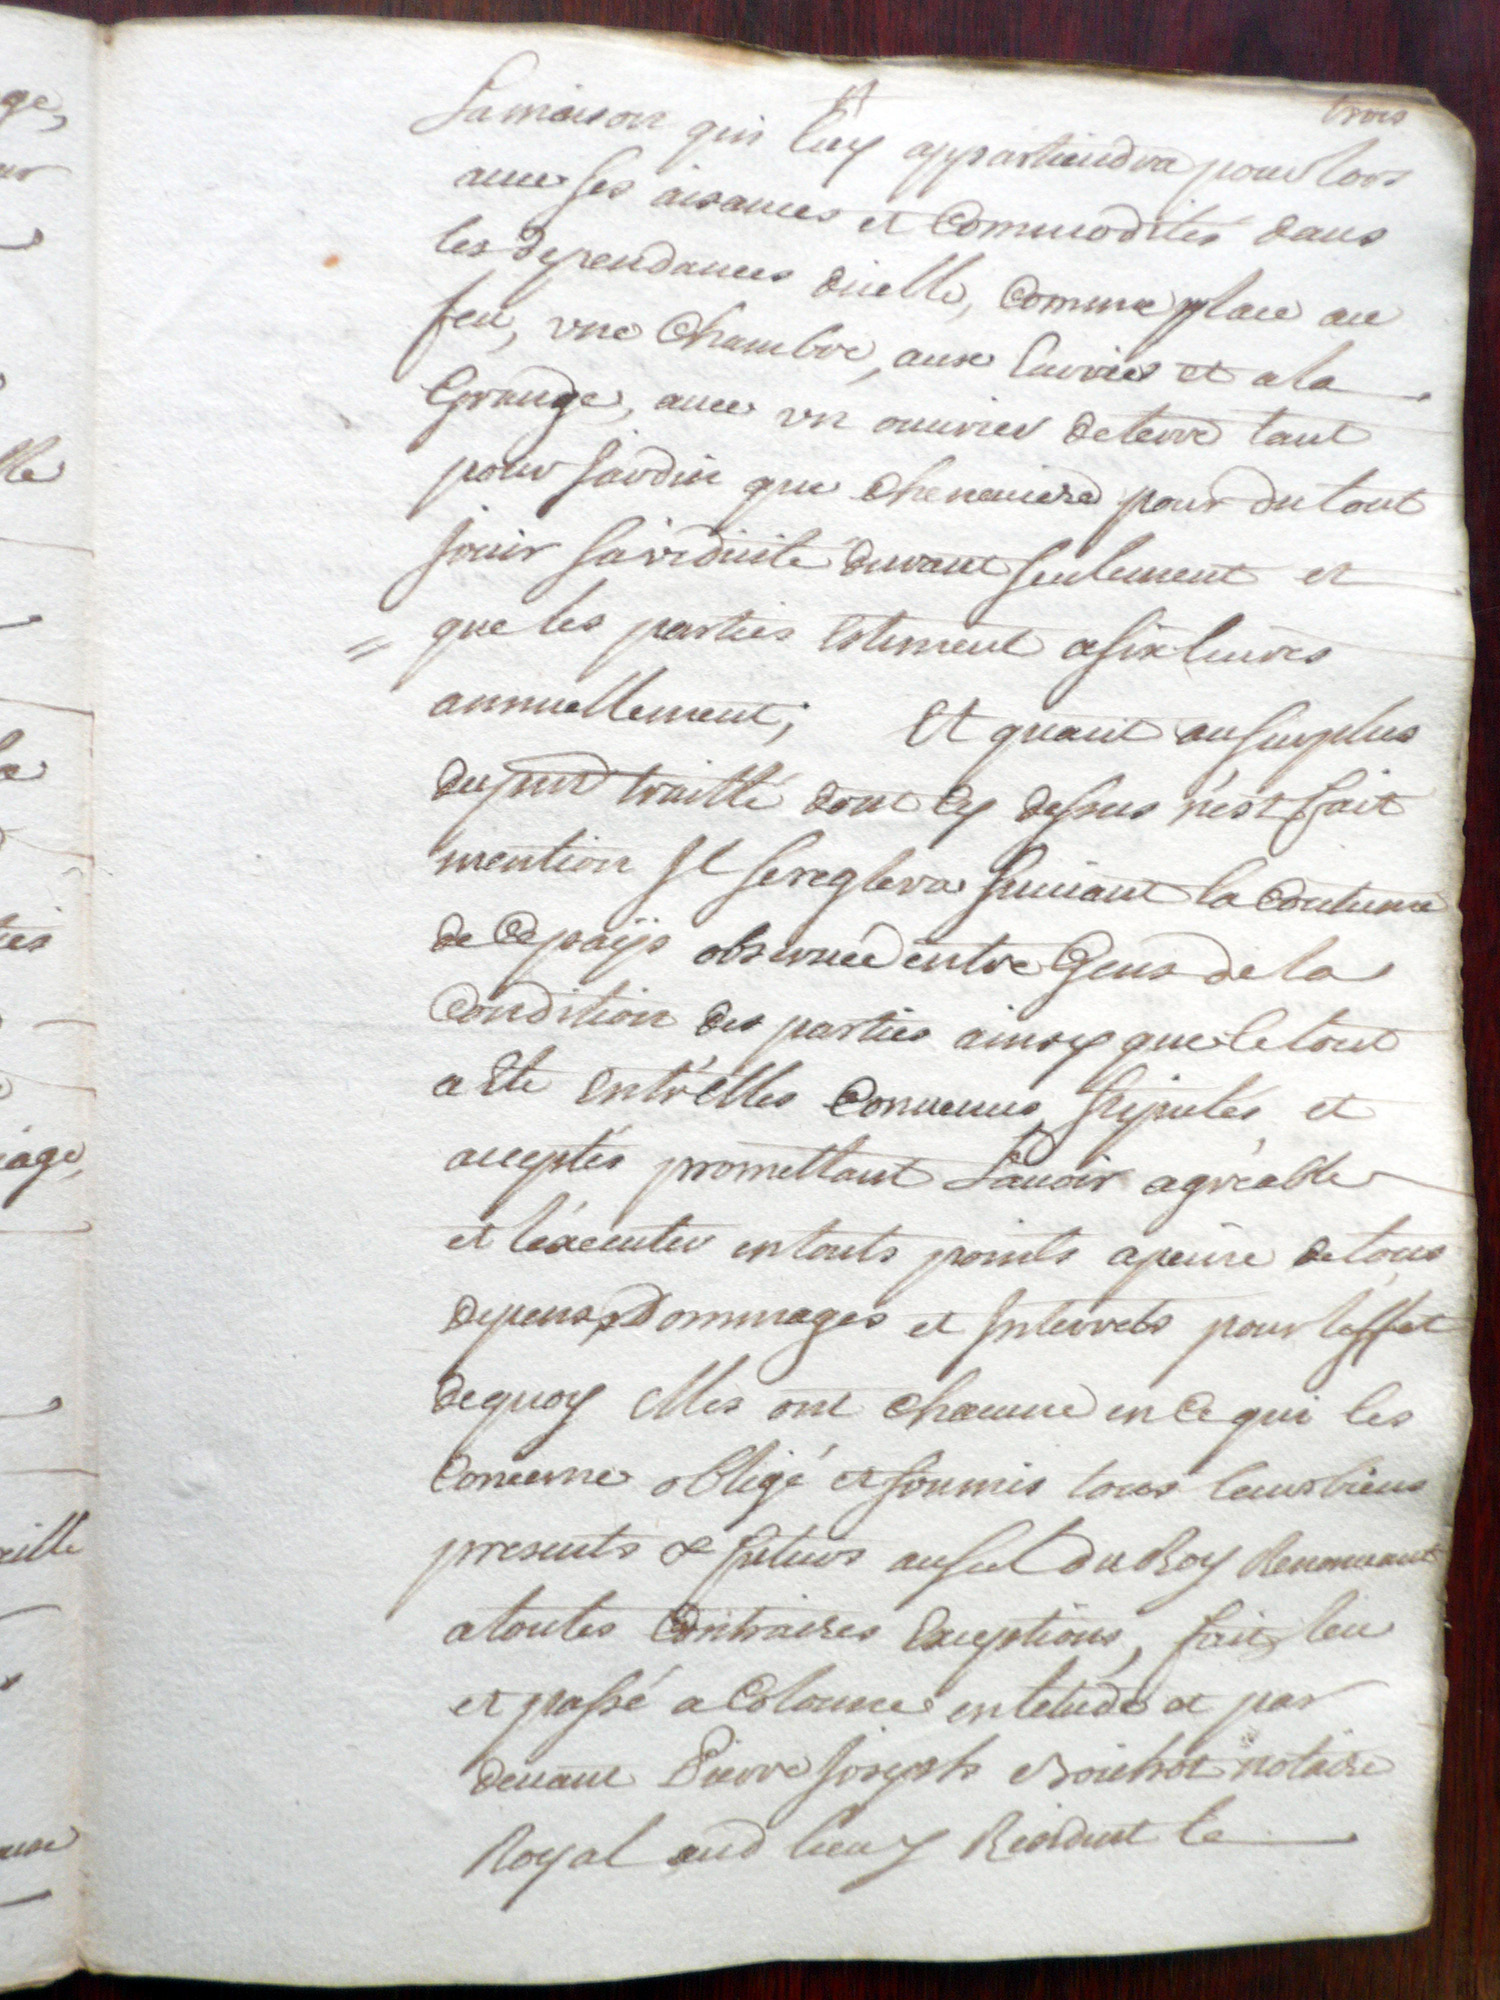 trois
la maison qui luy appartiendra pour lors
avec ses aisances et commodités dans
les dependances d'icelle, comme place au
feu, une chambre, aux Ecuries et a la
Grange, avec vn ouvrier de terre tant
pour jardin que cheneviere pour du tout
jouir sa viduité durant seulement et
que les parties Estiment a six livres
annuellement; Et quant au surplus
du pnt traitté dont cy dessus n'est fait
mention Il se reglera suivant la coutume
de ce païs observée entre Gens de la
condition des parties ainsy que le tout
a Eté entr'elles convenus, stipulés, et
acceptés promettant L'avoir agréable
et l'éxecuter en touts points a peine de tous
depens, Dommages et Interrets pour l'effet
de quoy elles ont chacune en ce qui les
concerne obligé et soumis tous leurs biens
presents & futurs au scel du Roy Renonceant
a toutes contraires Exceptions, fait, leu
et passé a Colonne en létude et par
devant Pierre Joseph notaire
Royal aud lieu y Residant le